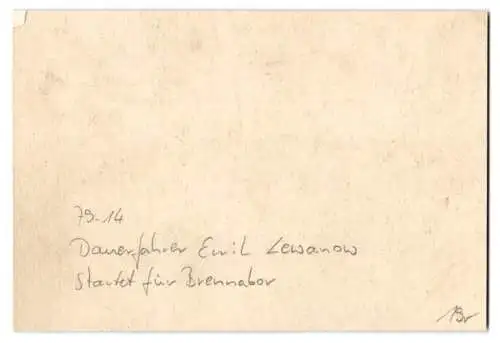 79-14
Dauerfahrer Emil Lewanow
Startet für Brennabor